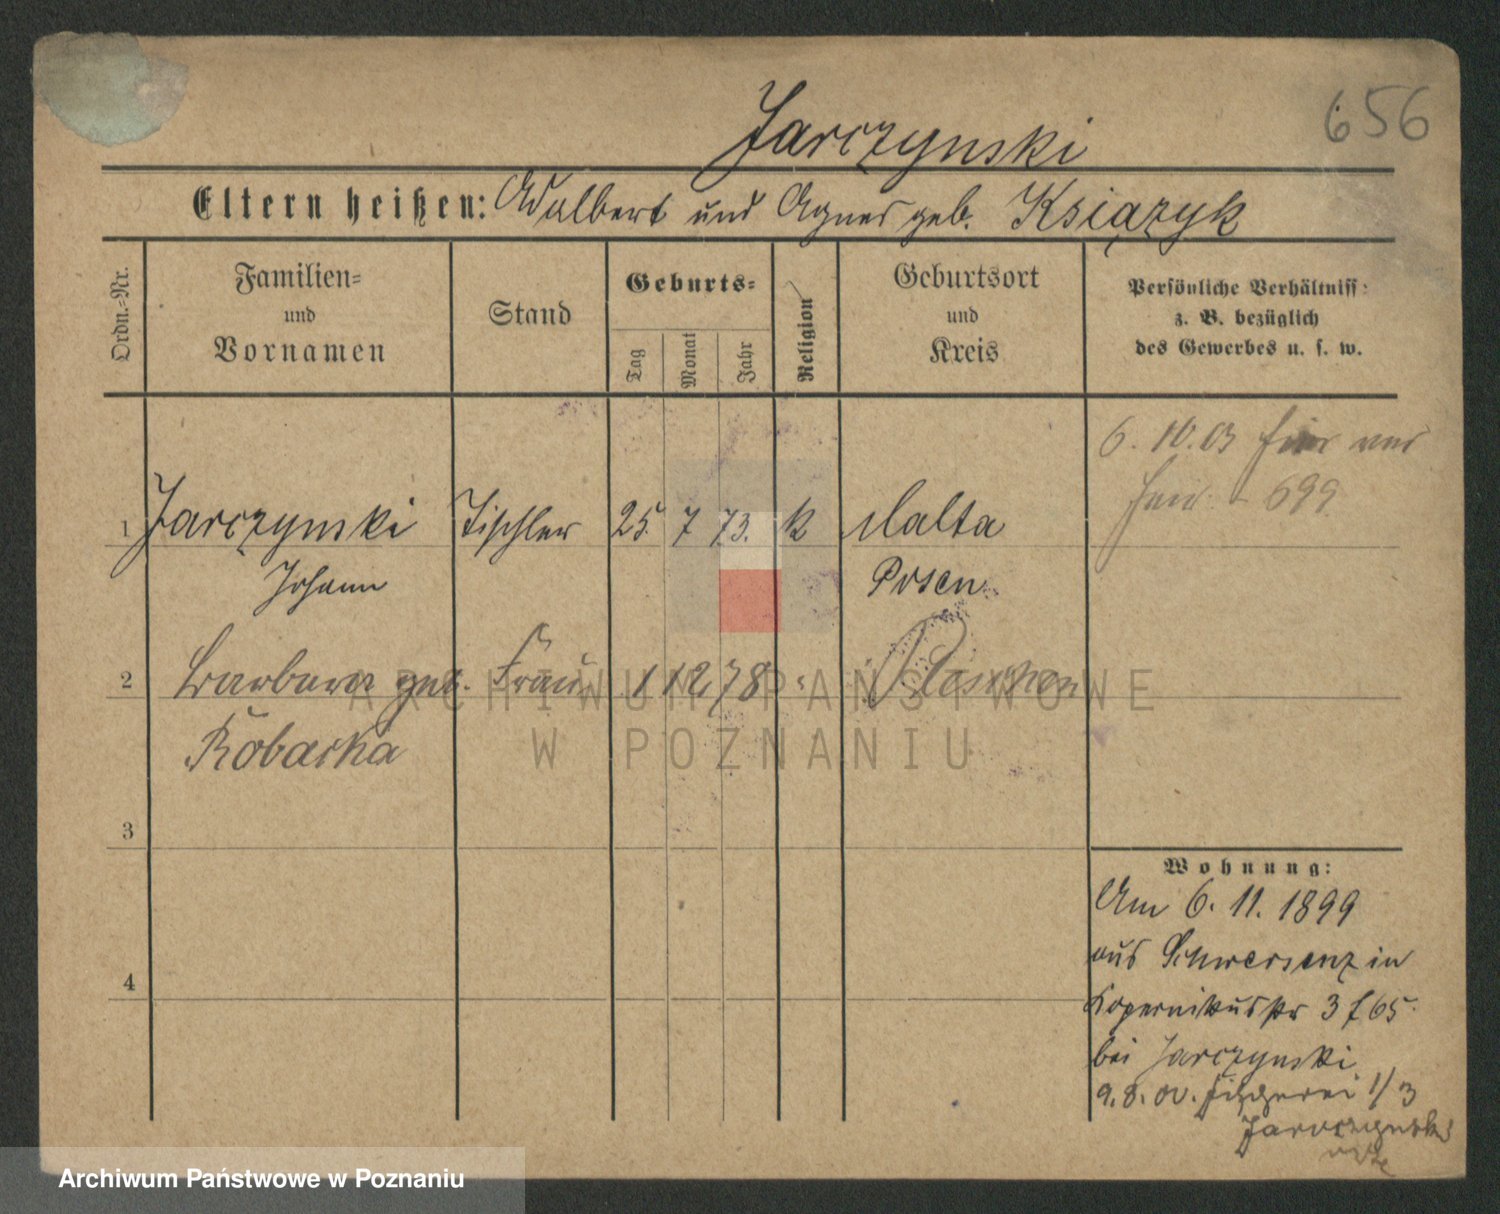 656
Jarczynski
Eltern heißen: Adalbert und Agnes geb. Książyk
Ordn.-Nr.
Familien-
und
Vornamen
Stand
Geburts-
Tag
Monat
Jahr
Religion
Geburtsort
und
Kreis
Persönliche Verhältniss:
z. B. bezüglich
des Gewerbes u. s. w.
6. 10. 03
699
1 Jarczynski Tischler 25. 7 73. k Malta
Johann Posen
2 Barbara geb. Frau 1 12 78 Pleschen
Robaska
3
4
Wohnung:
Am 6. 11. 1899
aus Schwersenz in
Kopernikusstr 3 f 65
bei Jarczynski
9. 8. 00. 1/3
Jaroczynski
ARCHIWUM PAŃSTWOWE
W POZNANIU
Archiwum Państwowe w Poznaniu